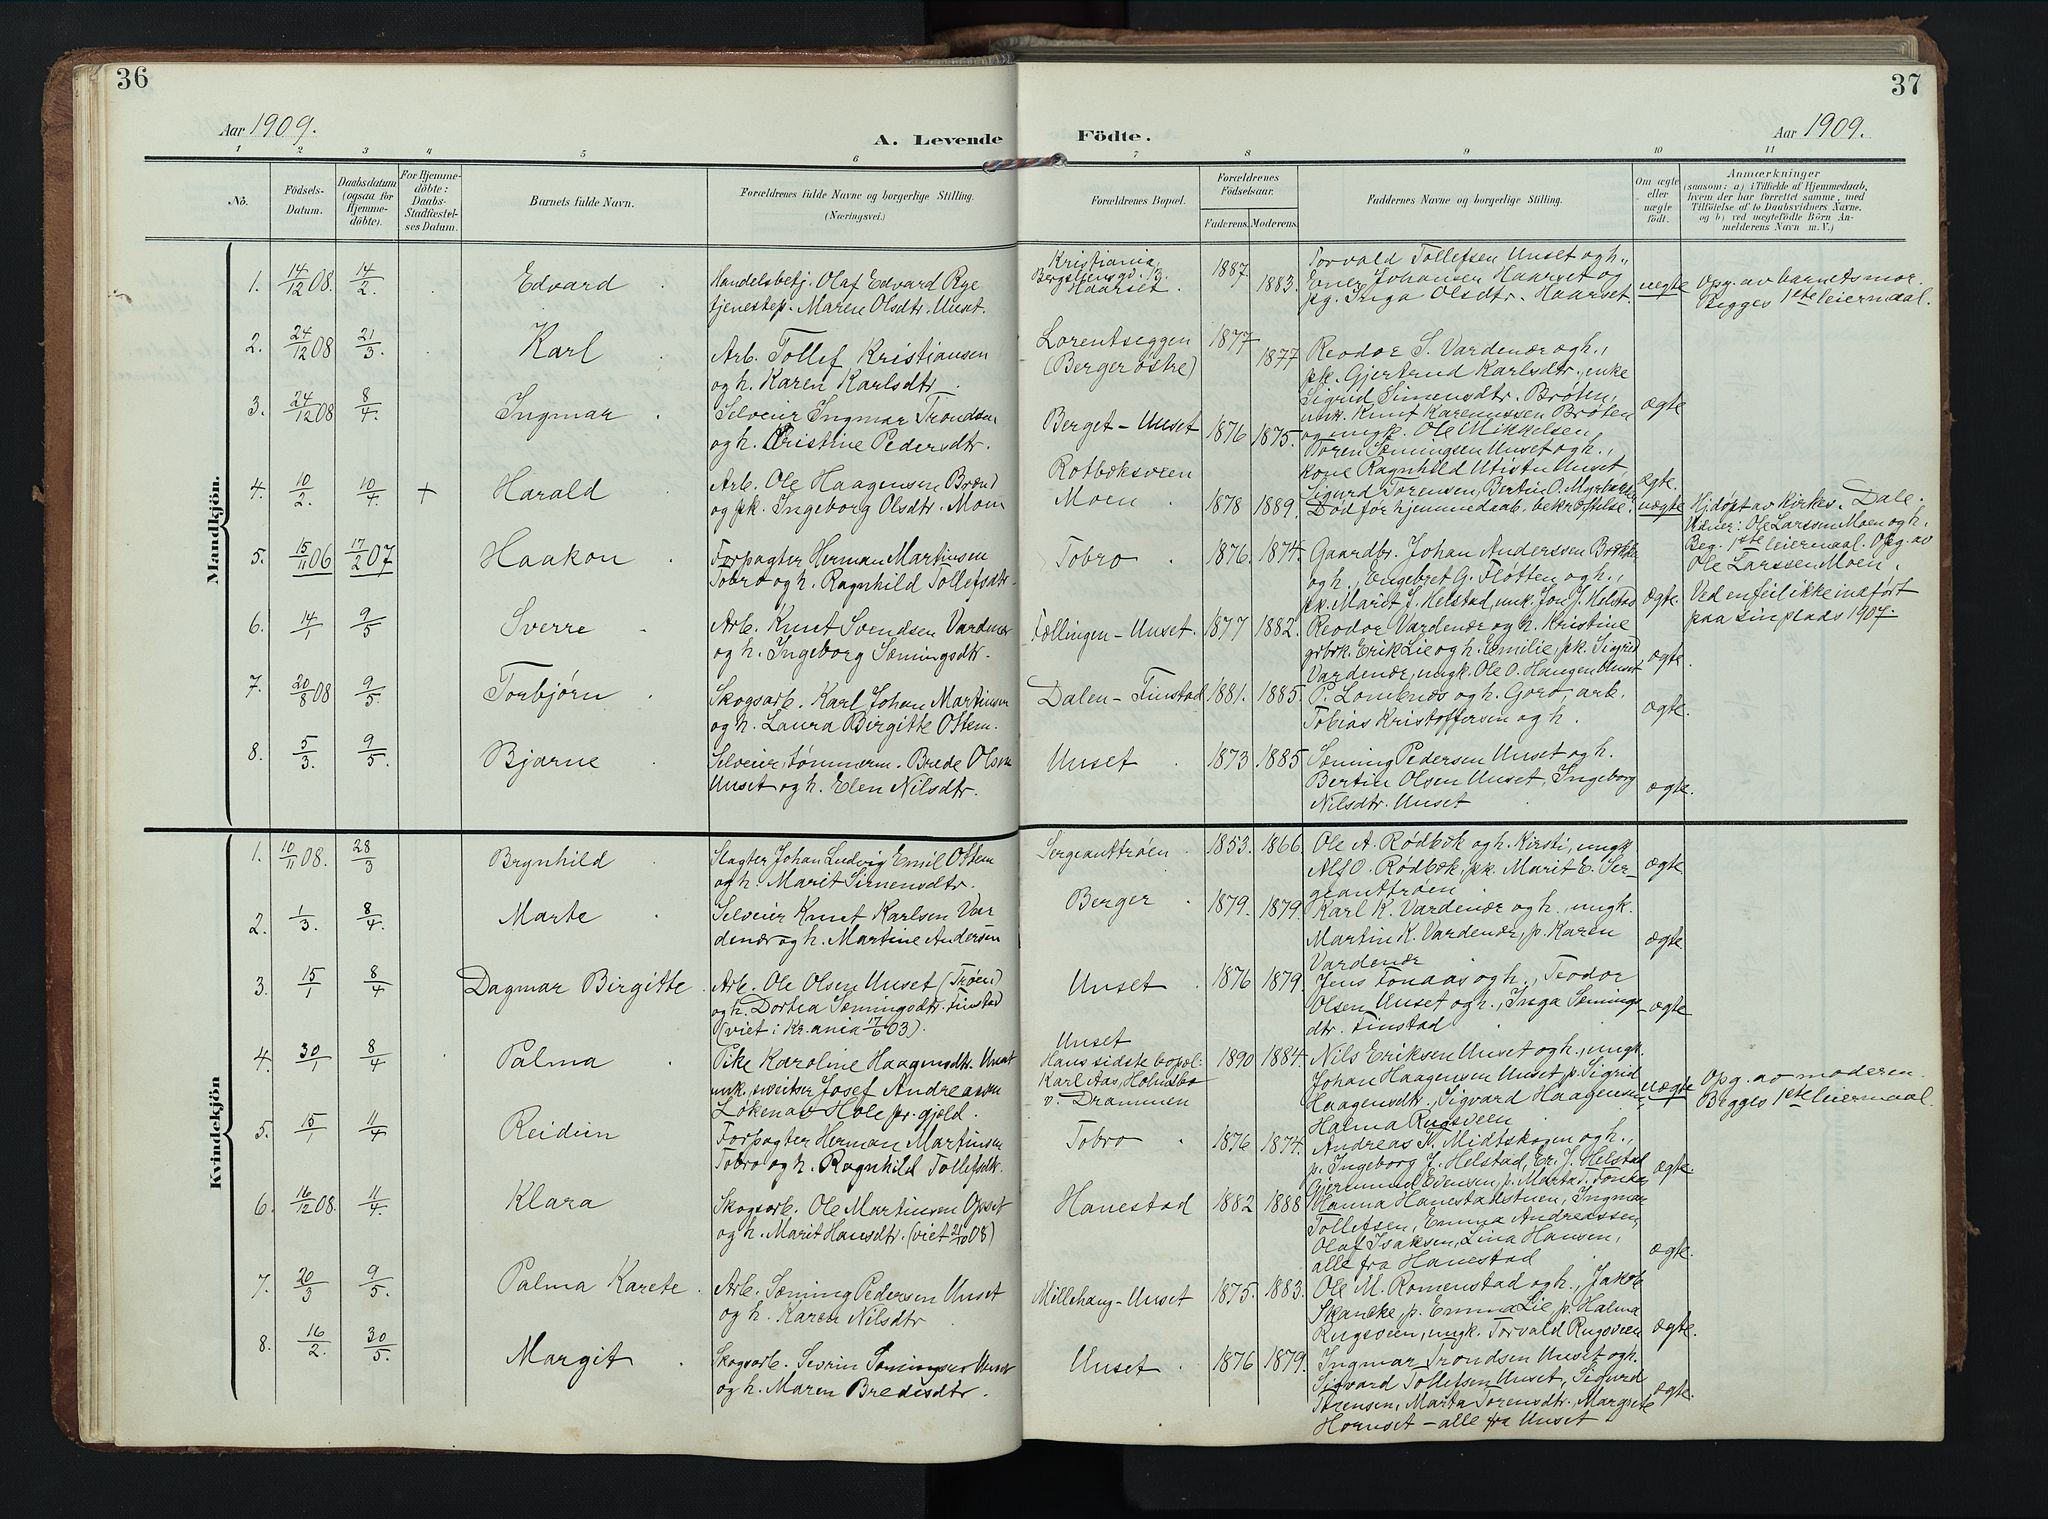 36
37
Aar 1909.
A. Levende
Födte.
Aar 1909.
1 2 3 4 5 6 7 8 9 10 11
No.
Födsels-
Datum.
Daabsdatum
(ogsaa for
Hjemme-
döbte).
For Hjemme-
döbte:
Daabs-
Stadfæstel-
ses Datum.
Barnets fulde Navn.
Forældrenes fulde Navne og borgerlige Stilling.
(Næringsvei.)
Forældrenes Bopæl.
Forældrenes
Födselsaar.
Faderens. Moderens.
Faddernes Navne og borgerlige Stilling.
Om ægte
eller
uægte
födt.
Anmærkninger
(saasom: a) i Tilfælde af Hjemmedaab,
hvem der har forrettet samme, med
Tilföielse af to Daabsvidners Navne,
og b) ved uægtefödte Börn An-
melderens Navn m. V.)
Mandkjön.
1. 14/12 08. 14/2. Edvard
Handelsbetj. Olaf Edvard Rye
tjenestep. Maren Olsdtr. Unset.
Kristiania,
Haarset.
1887 1883.
Torvald Tollefsen Unset og h.,
Einer Johansen Haarset og
pg. Inga Olsdtr. Haarset.
uægte
Opg. av barnets mor.
Begges 1ste leiermaal.
2. 24/12 08 21/3. Karl
Arb. Tollef Kristiansen
og h. Karen Karlsdtr.
Lorentseggen
(Berger østre)
1877 1877
Reodor S. Vardenær og h.,
pk. Gjertrud Karlsdtr., enke
Sigrid Simensdtr. Brøten,
3. 24/12 08 8/4. Ingmar
Selveier Ingmar Trondsen
og h. Kristine Pedersdtr.
Berget - Unset
1876 1875.
ungk. Knut Karenussen Brøten
og ungk. Ole Mikkelsen,
ægte
4. 10/2. 10/4. + Harald
Arb. Ole Haagensen Brænd
og pk. Ingeborg Olsdtr. Moen
Rotbæksveen
Moen
1878 1889.
Toren Sæmingsen Unset og h.,
kone Ragnhild Utistu Unset,
Sigurd Torensen, Bertin O. Myrbakke
Død før hjemmedaab. bekræftelse.
ægte.
uægte
Hj.døpt av Kirkes. Dale.
Vidner: Ole Larssen Moen og h.
Beg. 1ste leiermaal. Opg. av
Ole Larssen Moen.
5. 15/11 06 17/2 07 Haakon
Forpagter Herman Martinsen
Tobro og h. Ragnhild Tollefsdtr.
Tobro
1876. 1874.
Gaardbr. Johan Anderssen Bække
og h., Engebret G. Fløtten og h.,
pk. Marit J. Helstad, unk. Jon J. Helstad
ægte.
Ved en feil ikke indført
paa sin plads 1907.
6. 14/1 9/5 Sverre
Arb. Knut Svendsen Vardenær
og h. Ingeborg Sæmingsdtr.
Fællingen - Unset.
1877 1882.
Reodor Vardenær og h. Kristine
grbrk. Erik Lie og h. Emilie, pk. Sigrid
Vardenær, ungk. Ole O. Haugen Unset
ægte.
7. 20/8 08 9/5. Torbjørn
Skogsarb. Karl Johan Martinsen
og h. Laura Birgitte Ostem.
Dalen - Finstad
1881. 1885.
P. Lomenæs og h. Goro, arb.
Tobias Kristoffersen og h.
ægte.
8. 5/3. 9/5. Bjarne
Selveier, tømmerm. Brede Olsen
Unset og h. Elen Nilsdtr.
Unset
1873 1885
Sæming Pedersen Unset og h.
Bertin Olsen Unset, Ingeborg
Nilsdtr. Unset
ægte.
Kvindekjön
1. 10/11 08. 28/3 Brynhild
Slagter Johan Ludvig Emil Ostem
og h. Marit Simensdtr.
Sergeanttrøen
1853. 1866
Ole A. Rødbæk og h. Kirsti, ungk
Alf O. Rødbæk, pk. Marit E. Ser-
geanttrøen
ægte
2. 1/3. 8/4. Marte
Selveier Knut Karlsen Var
denær og h. Martine Andersen
Berger
1879. 1879.
Karl K. Vardenær og h., ungk.
Martin K. Vardenær, p. Karen
Vardenær
ægte.
3. 15/1 8/4 Dagmar Birgitte
Arb. Ole Olsen Unset (Trøen)
og h. Dortea Sæmingsdtr. Finstad
(viet i Kr.ania 17/6 03).
Unset
1876 1879.
Jens Fonaas og h., Teodor
Olsen Unset og h., Inga Sæmings-
dtr. Finstad
ægte.
4. 30/1 8/4 Palma
Pike Karoline Haagensdtr. Unset
unk. sveitser Josef Andreassen
Løken av Hole pr.gjeld.
Unset
Hans sidste bopæl:
Karl Aas, Holmsbo
v. Drammen
1890 1884.
Nils Eriksen Unset og h., ungk.
Johan Haagensen Unset, p. Sigrid
Haagensdtr., Sigvard Haagensen,
Halma Rugsveen
uægte
Opg. av moderen.
Begges 1ste leiermaal.
5. 15/1 11/4 Reidun
Forpagter Herman Martinsen
Tobro og h. Ragnhild Tollefsdtr.
Tobro
1876 1874.
Andreas K. Midtskogen og h.,
p. Ingeborg J. Helstad, Er. J. Helstad
Gjermund Evensen, p. Marta T. Fonaas
ægte.
6. 16/12 08. 11/4. Klara
Skogsarb. Ole Martinsen Opset
og h. Marit Hansdtr. (viet 21/10 08)
Hanestad
1882 1888
Hanna Hanestadstuen, Ingmar
Tollefsen, Emma Andreassen,
Olaf Isaksen, Lina Hansen,
alle fra Hanestad
ægte.
7. 20/3 9/5. Palma Karete
Arb. Sæming Pedersen Unset
og h. Karen Nilsdtr.
Millehaug - Unset
1875. 1883.
Ole M. Romenstad og h., Jakob
Skancke, p. Emma Lie, p. Halma
Rugsveen, ungk. Torvald Rugsveen
ægte.
8. 16/2. 30/5. Margit
Skogsarb. Sevrin Sæmingsen Unset
og h. Maren Bredesdtr.
Unset
1876 1879.
Ingmar Trondsen Unset og h.
Sigvard Tollefsen Unset, Sigurd
Torensen, Marta Torensdtr. Margrete
Hornset - alle fra Unset
ægte.